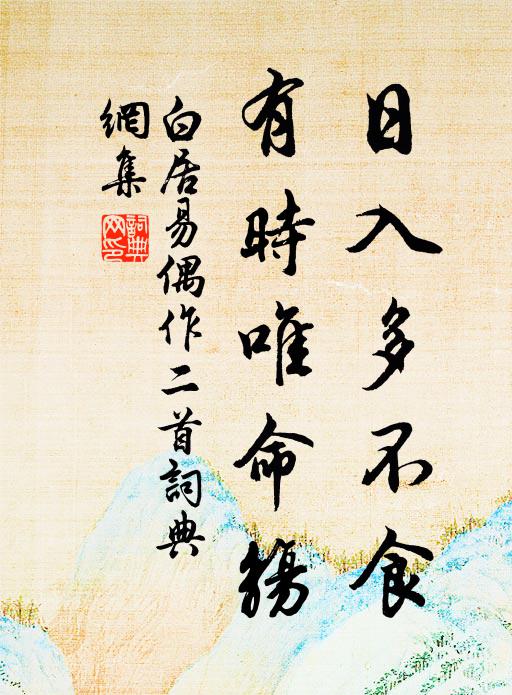 日入多不食
有時唯命觴
白居易偶作二首詞典
網集
詞典
网印